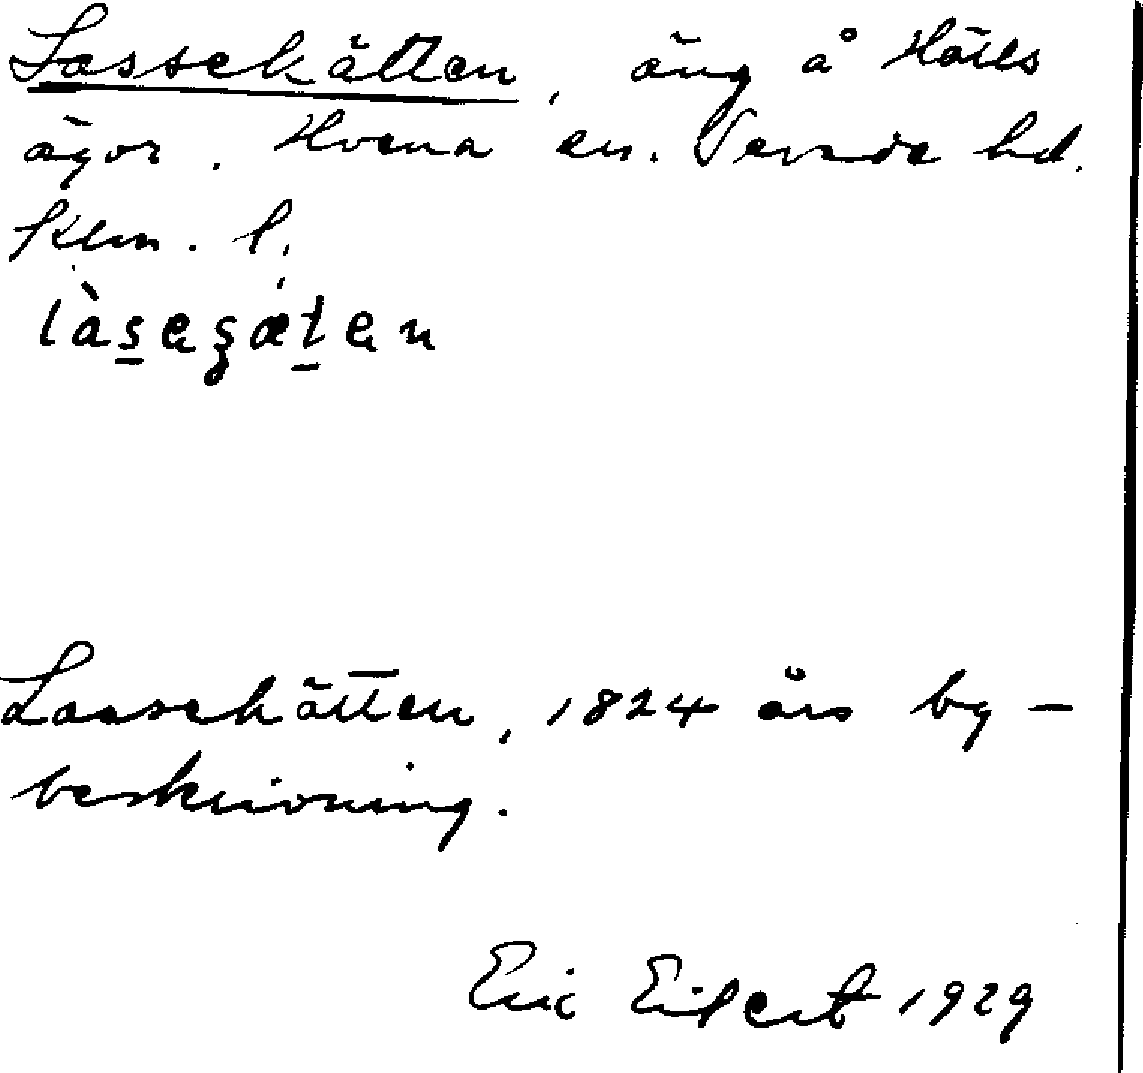 Lassekätten, äng å
ägor. Hvena sn. Sevede hd.
Klm. l.
làseʒæten
Lassekätten, 1824 års by-
beskrivning.
Eric Eilert 1929